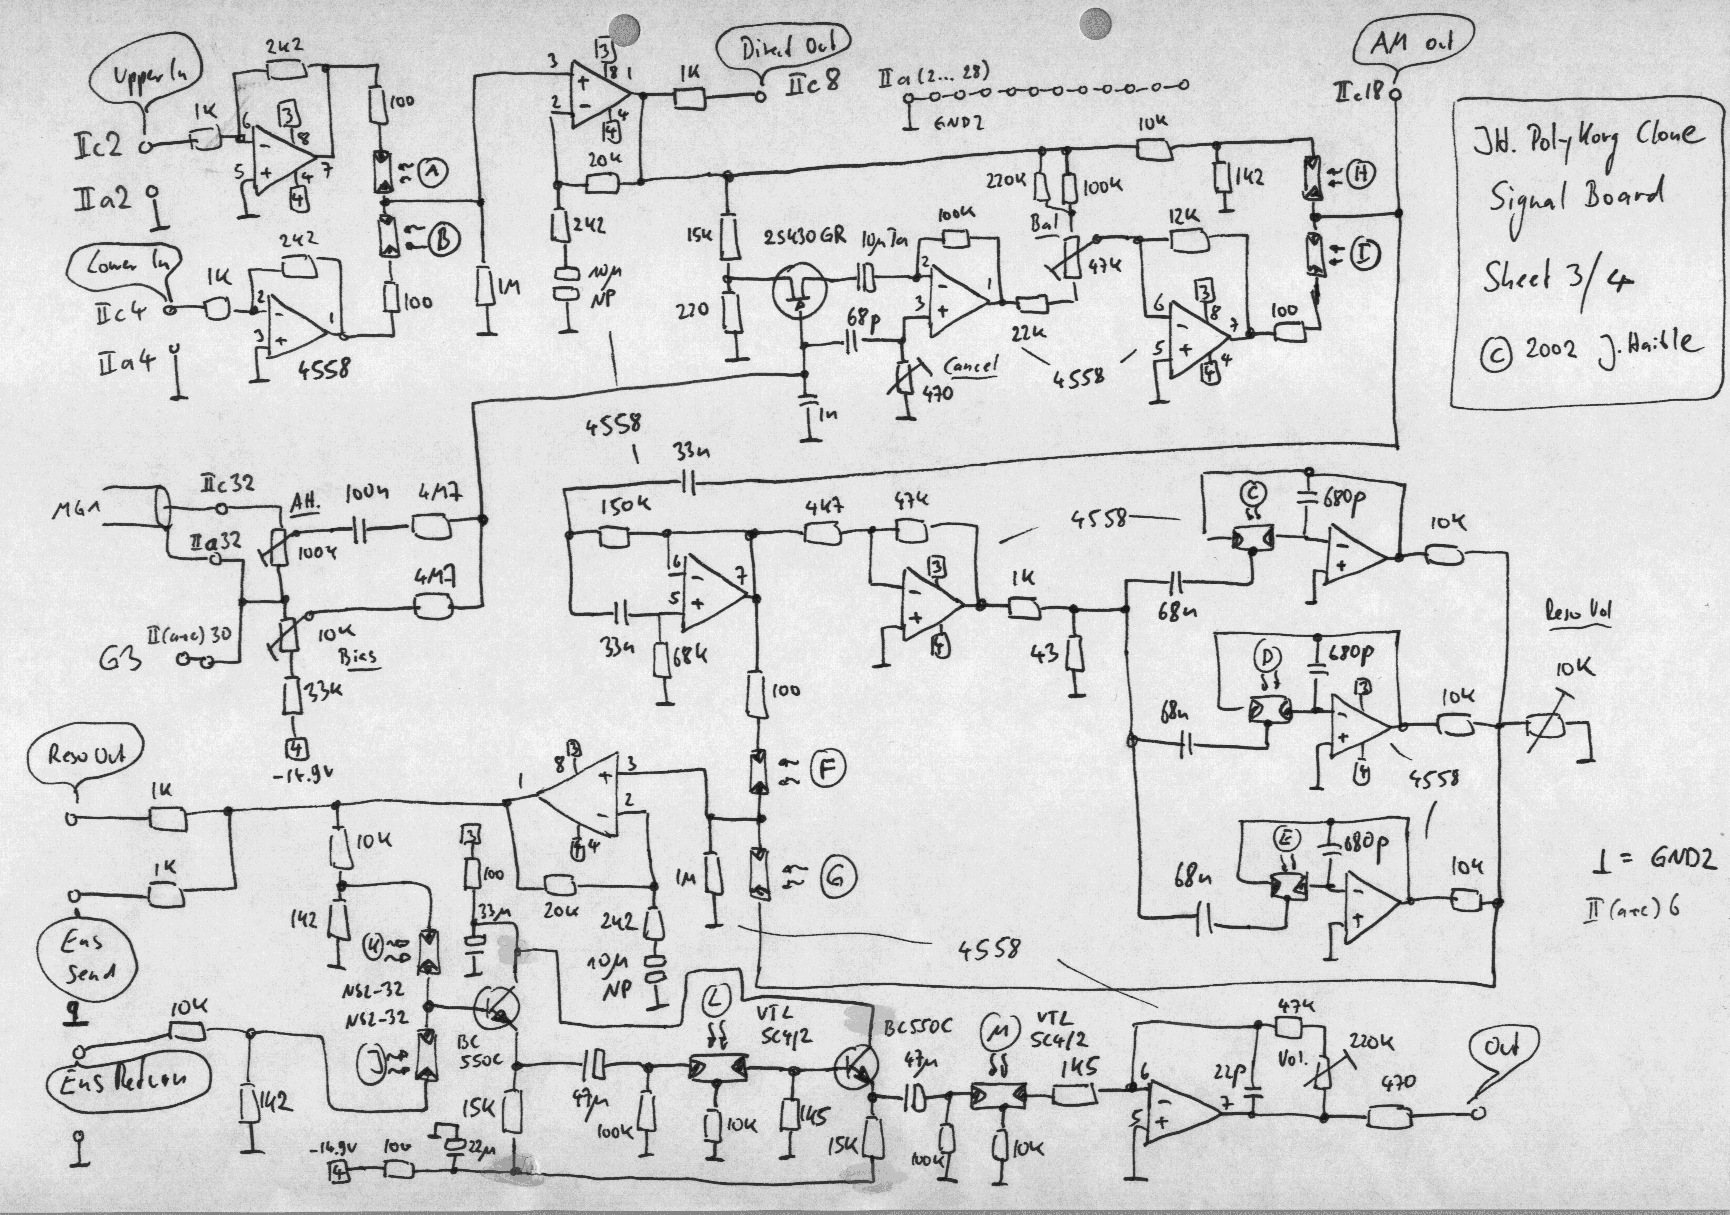 Upper In
2k2
1K
100
IIc2
6
3
8
5
4
7
4
A
IIa2
B
Lower In
2k2
1K
100
IIc4
2
3
1
IIa4
4558
3
3
8
1
2
4
4
1K
Direct Out
IIc8
20K
2k2
1M
10µ
NP
IIa (2... 28)
GND2
AM out
IIc18
10K
220K
100K
1k2
H
Bal
12K
I
15K
2SK30GR
10µTa
100K
47K
220
68p
2
3
1
22K
6
3
8
5
7
4
4
100
Cancel
470
4558
1n
JH. PolyKorg Clone
Signal Board
Sheet 3/4
© 2002 J. Haible
4558
33n
MG1
IIc32
AH.
100n
4M7
IIa32
100k
4M7
II(a+c)30
10K
G3
Bias
33K
4
-14.9V
150K
4k7
47K
6
7
5
33n
68K
3
4
1K
43
4558
C
680p
10K
68n
D
680p
3
10K
68n
4
4558
E
680p
10K
68n
Reso Vol
10K
⊥ = GND2
II (a+c) 6
100
F
G
Reso Out
1K
1K
Ens
Send
10K
1k2
3
8
1
3
2
4
4
3
100
33µ
20K
2k2
1M
10µ
NP
4558
K
NSL-32
NSL-32
J
BC
550C
10K
Ens Return
1k2
-14.9V
4
100
22µ
15K
47µ
100K
L
VTL
5C4/2
10K
1K5
BC550C
15K
47µ
100K
M
VTL
5C4/2
10K
1K5
47K
Vol.
220K
22p
6
5
7
470
Out